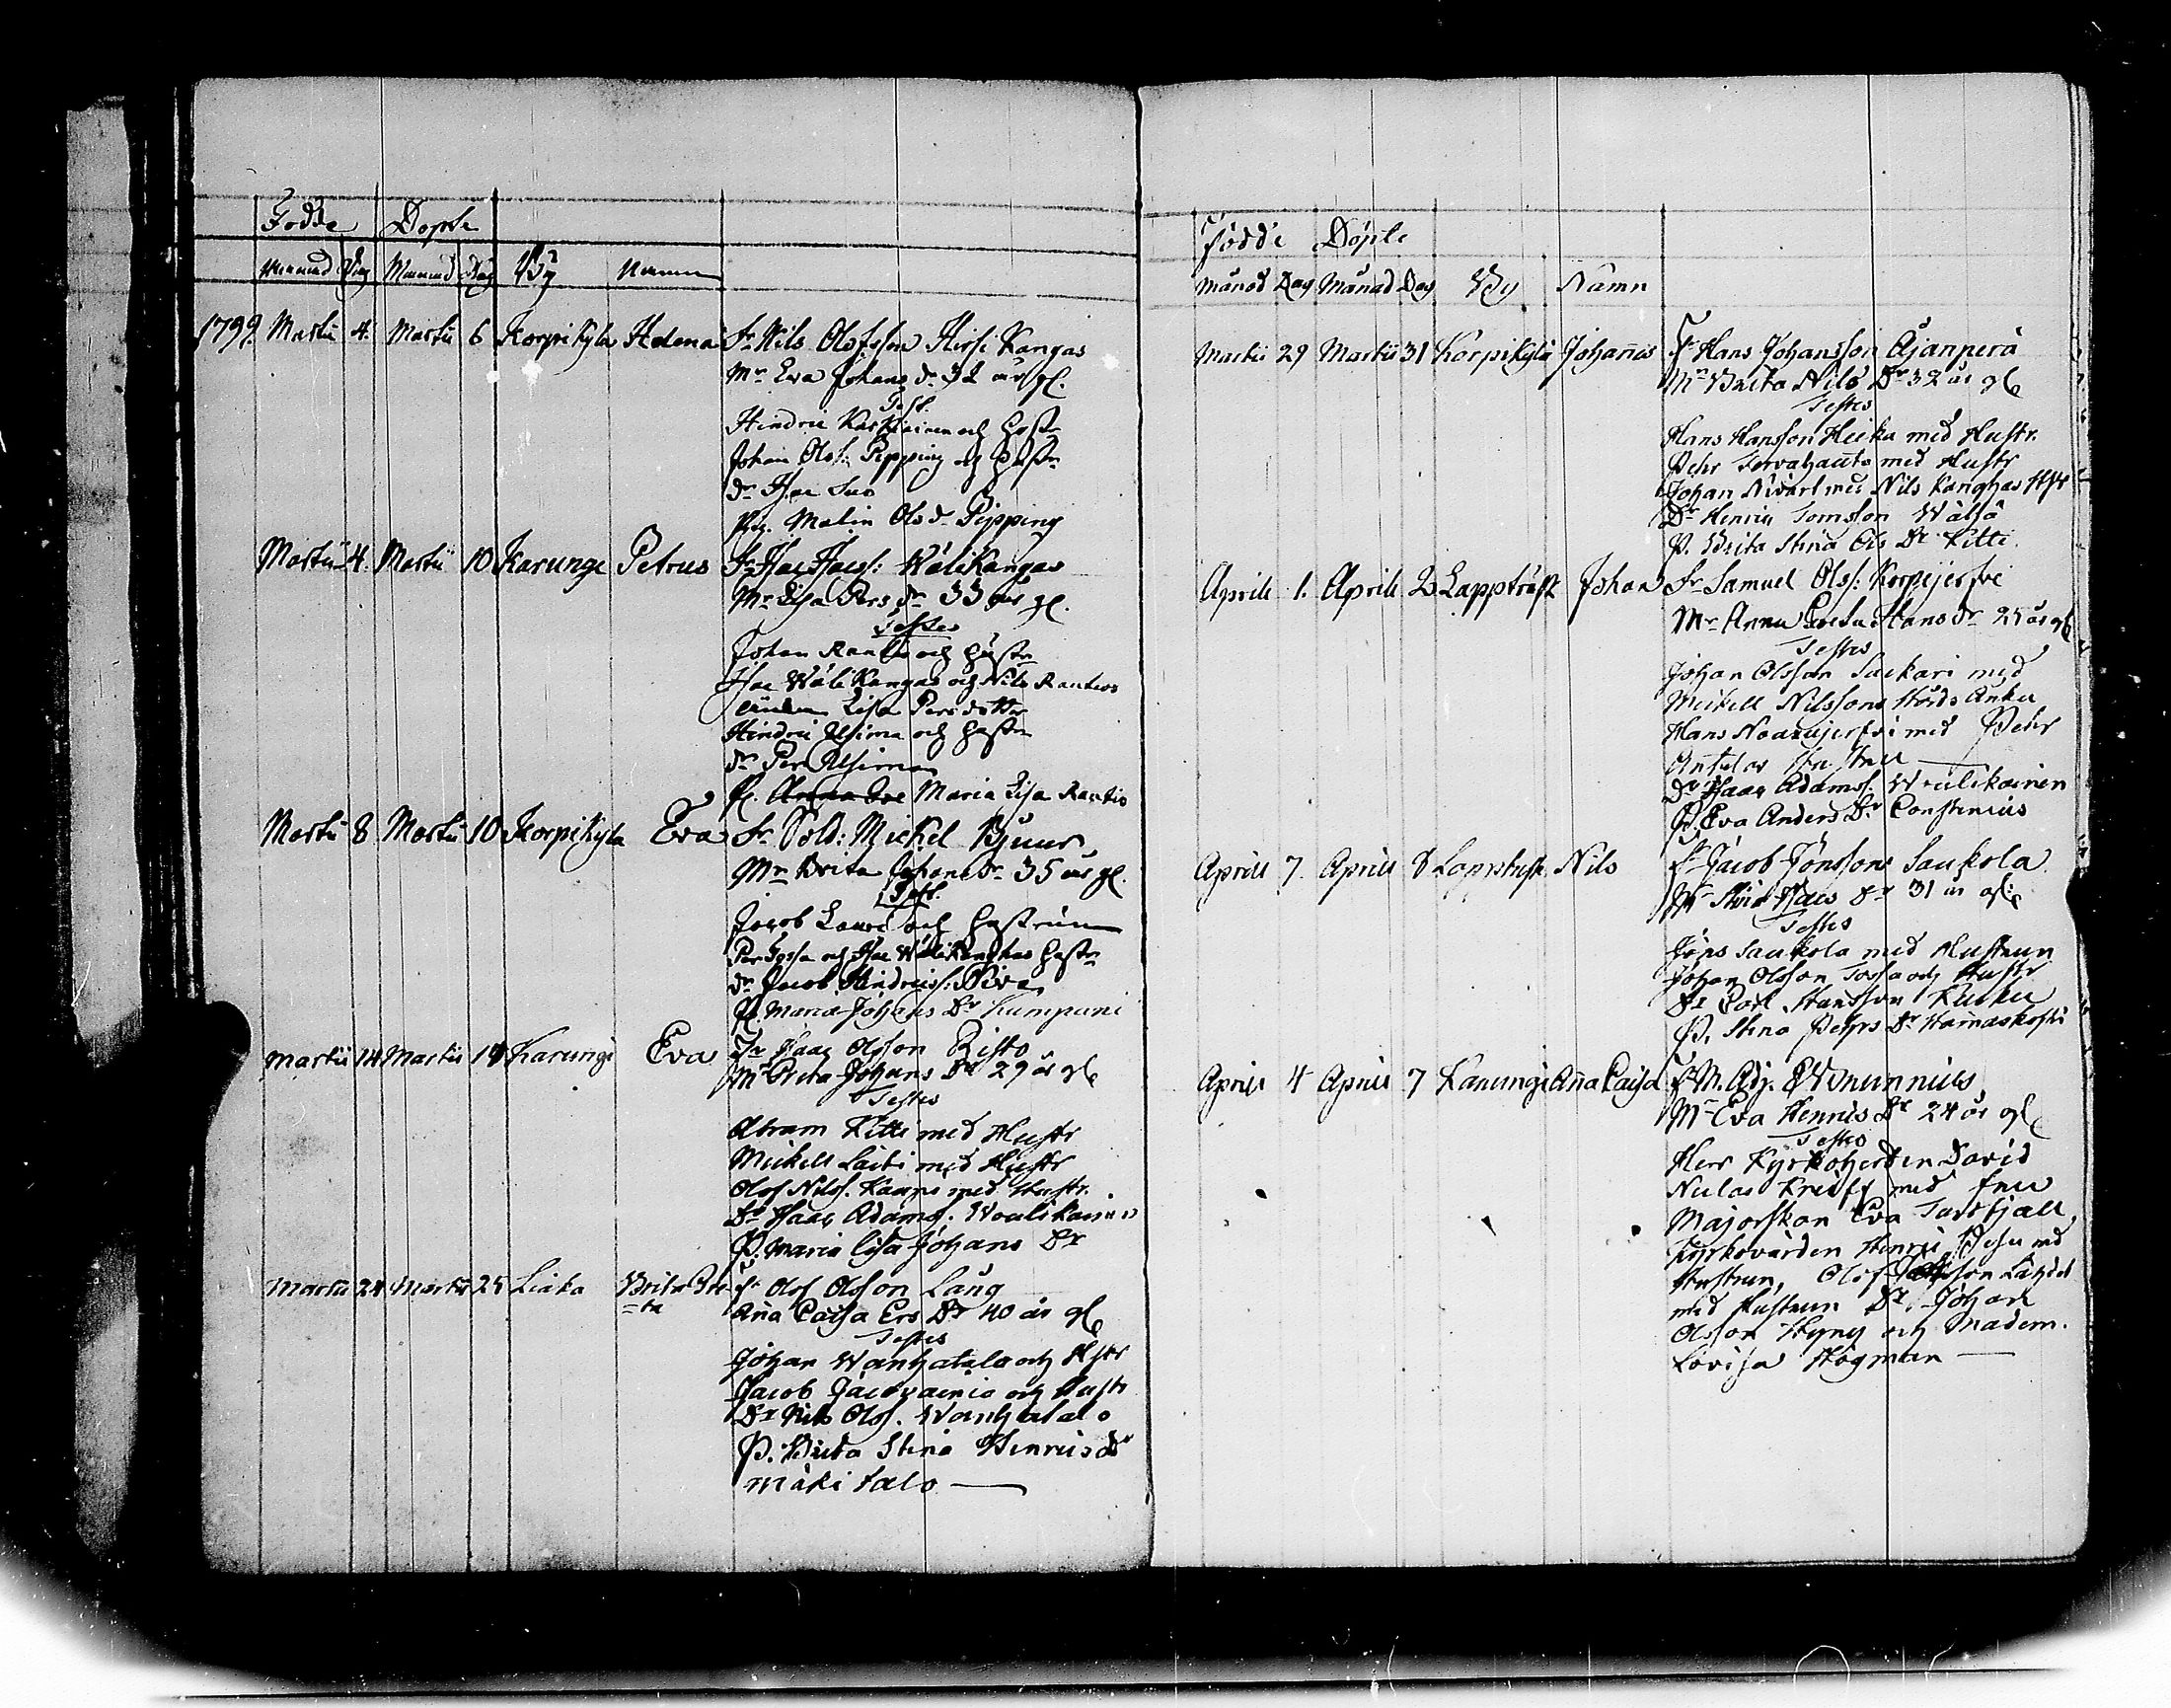 Födde Döpte
Månad Dag Månad Dag By Namn
1799. Martii 4. Martii 6 Korpikyla Helena Fr Nils Olofsson Hirsi Kangas
Mr Eva Johans dr 32 år gl.
Test.
Hindric Karkiainen och Hustr
Johan Olofs: Pipping och Hustr
dr Isac
Pig. Malin Ols dr Pipping
Martii 4. Martii 10 Karungi Petrus Fr Isac Isacs: WäliKangas
Mr Lisa Pers dr 33 år gl.
Testes
Johan Rantio och Hustr
Isac WäliKangas och Nils Rantios
änkan Lisa Persdotter
Hindric och Hustr
dr Per
P. Maria Lisa Rantio
Martii 8 Martii 10 Korpikyla Eva Fr Sold: Mickel Bjuur
Mr Brita Johans dr 35 år gl.
Test.
Jacob Lauri och Hustrun
Per och Isac WäliKanghas Hustr
dr Jacob Hindrics: Niva
P. Maria Johans Dr Kumpuni
Martii 14 Martii 14 Karungi Eva Fr Isaac Olsson Risto
Mr Brita Johans Dr 29 år gl
Testes
Abram Kitti med Hustr
Mickell Laiti med Hustr
Olof Nils. Kauppi med Hustr.
Dr Isaac Adams: Woulikainen
P. Maria Lisa Johans Dr
Martii 24 Martii 25 Liaka Brita Gre Fr Olof Olsson Lång
=ta Aña Caisa Ers Dr 40 år gl
Testes
Johan Wanhatalo och Hstr
Jacob Jacovainio och Hustr
Dr Nils Olof. Wanhatalo
P. Brita Stina Henrics Dr
Mäki talo
Födde Döpte
Månad Dag Månad Dag By Namn
Martii 29 Martii 31 Korpikylä Johañes Fr Hans Johansson Äjänperä
Mr Brita Nils Dr 32 år gl
Testes
Hans Hansson Heika med Hustr.
Pehr Torvahauta med Hustr
Johan Nivart med Nils Kanghas Hstr
Dr Henric Tomsson Wäljä
P. Brita Stina Ols Dr Kitti
Aprili 1. Aprili 2 Lappträsk Johan Fr Samuel Ols: Korpijerfvi
Mr Anna Greta Hans dr 25 år gl
Testes
Johan Olsson Saukari med
Mickell Nilssons Hörds Änka
Hans Noarajerfvi med Pehr
Antilas Hustru
Dr Isaac Adams. Woulikainen
P. Eva Anders Dr Constenius
Aprili 7. Aprili 8 Lappträsk Nils Fr Jacob Jönsson Saukola
Mr Stina Isacs Dr 31 år gl
Testes
Jöns Saukola med Hustrun
Johan Olsson Tossa och Hustr
Dr Carl Hansson Kuoku
P. Stina Pehrs Dr Hannaskoski
Aprili 4 Aprili 7 Karungi Aña Caisa Fr M. Adj. Wmunnius
Mr Eva Henrics Dr 24 år gl
Testes
Herr Kyrkoherden David
Nulas Kreüff med fru
Majorskan Eva Tavstfjall
Kyrkovärden Henric med
Hustrun, Olof son
med Hustrun Dr. Johan
Olsson Hyny och Madem.
Lovisa Högman